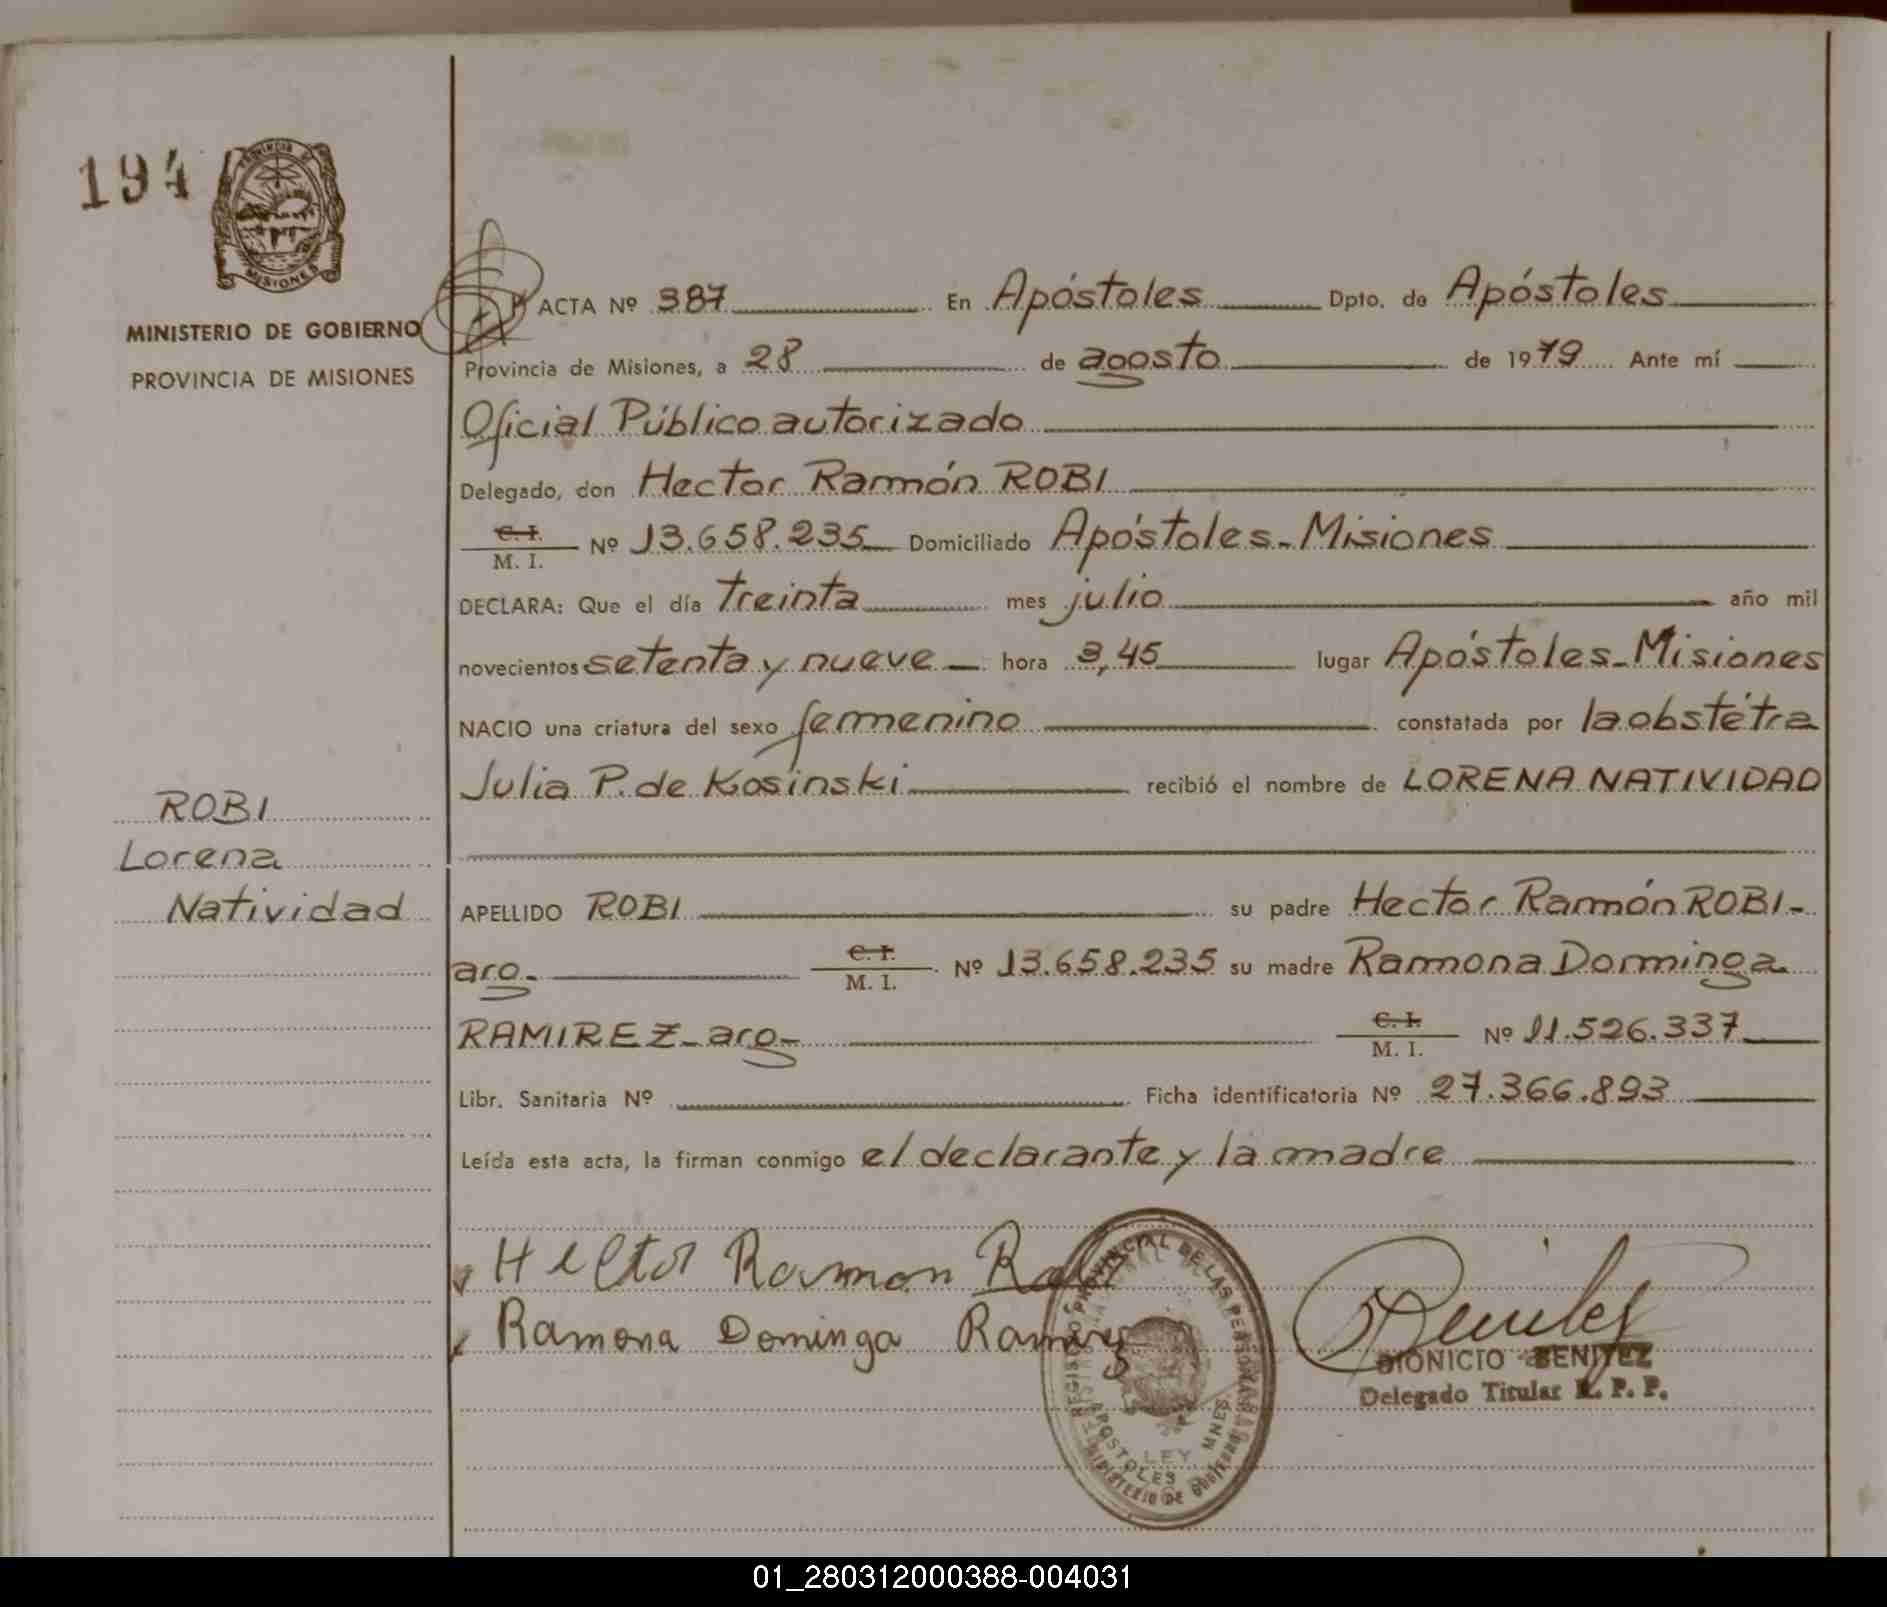 194
PROVINCIA DE
MISIONES
MINISTERIO DE GOBIERNO
PROVINCIA DE MISIONES
ACTA Nº 387 En Apóstoles Dpto. de Apóstoles
Provincia de Misiones, a 28 de agosto de 1979 Ante mí
Oficial Público autorizado
Delegado, don Hector Ramón ROBI
C. I.
M. I. Nº 13.658.235 Domiciliado Apóstoles-Misiones
DECLARA: Que el día treinta mes julio año mil
novecientos setenta y nueve hora 3,45 lugar Apóstoles-Misiones
NACIO una criatura del sexo femenino constatada por la obstétra
Julia P. de Kosinski recibió el nombre de LORENA NATIVIDAD
ROBI
Lorena
Natividad
APELLIDO ROBI su padre Hector Ramón ROBI-
arg- C. I.
M. I. Nº 13.658.235 su madre Ramona Dominga
RAMIREZ-arg- C. I.
M. I. Nº 11.526.337
Libr. Sanitaria Nº Ficha identificatoria Nº 27.366.893
Leída esta acta, la firman conmigo el declarante y la madre
Hector Ramon
Ramona Dominga Ramirez
REGISTRO PROVINCIAL DE LAS PERSONAS
APOSTOLES MNES
LEY
MINISTERIO DE GOBIERNO
Benitez
DIONICIO BENITEZ
Delegado Titular R. P. P.
01_280312000388-004031